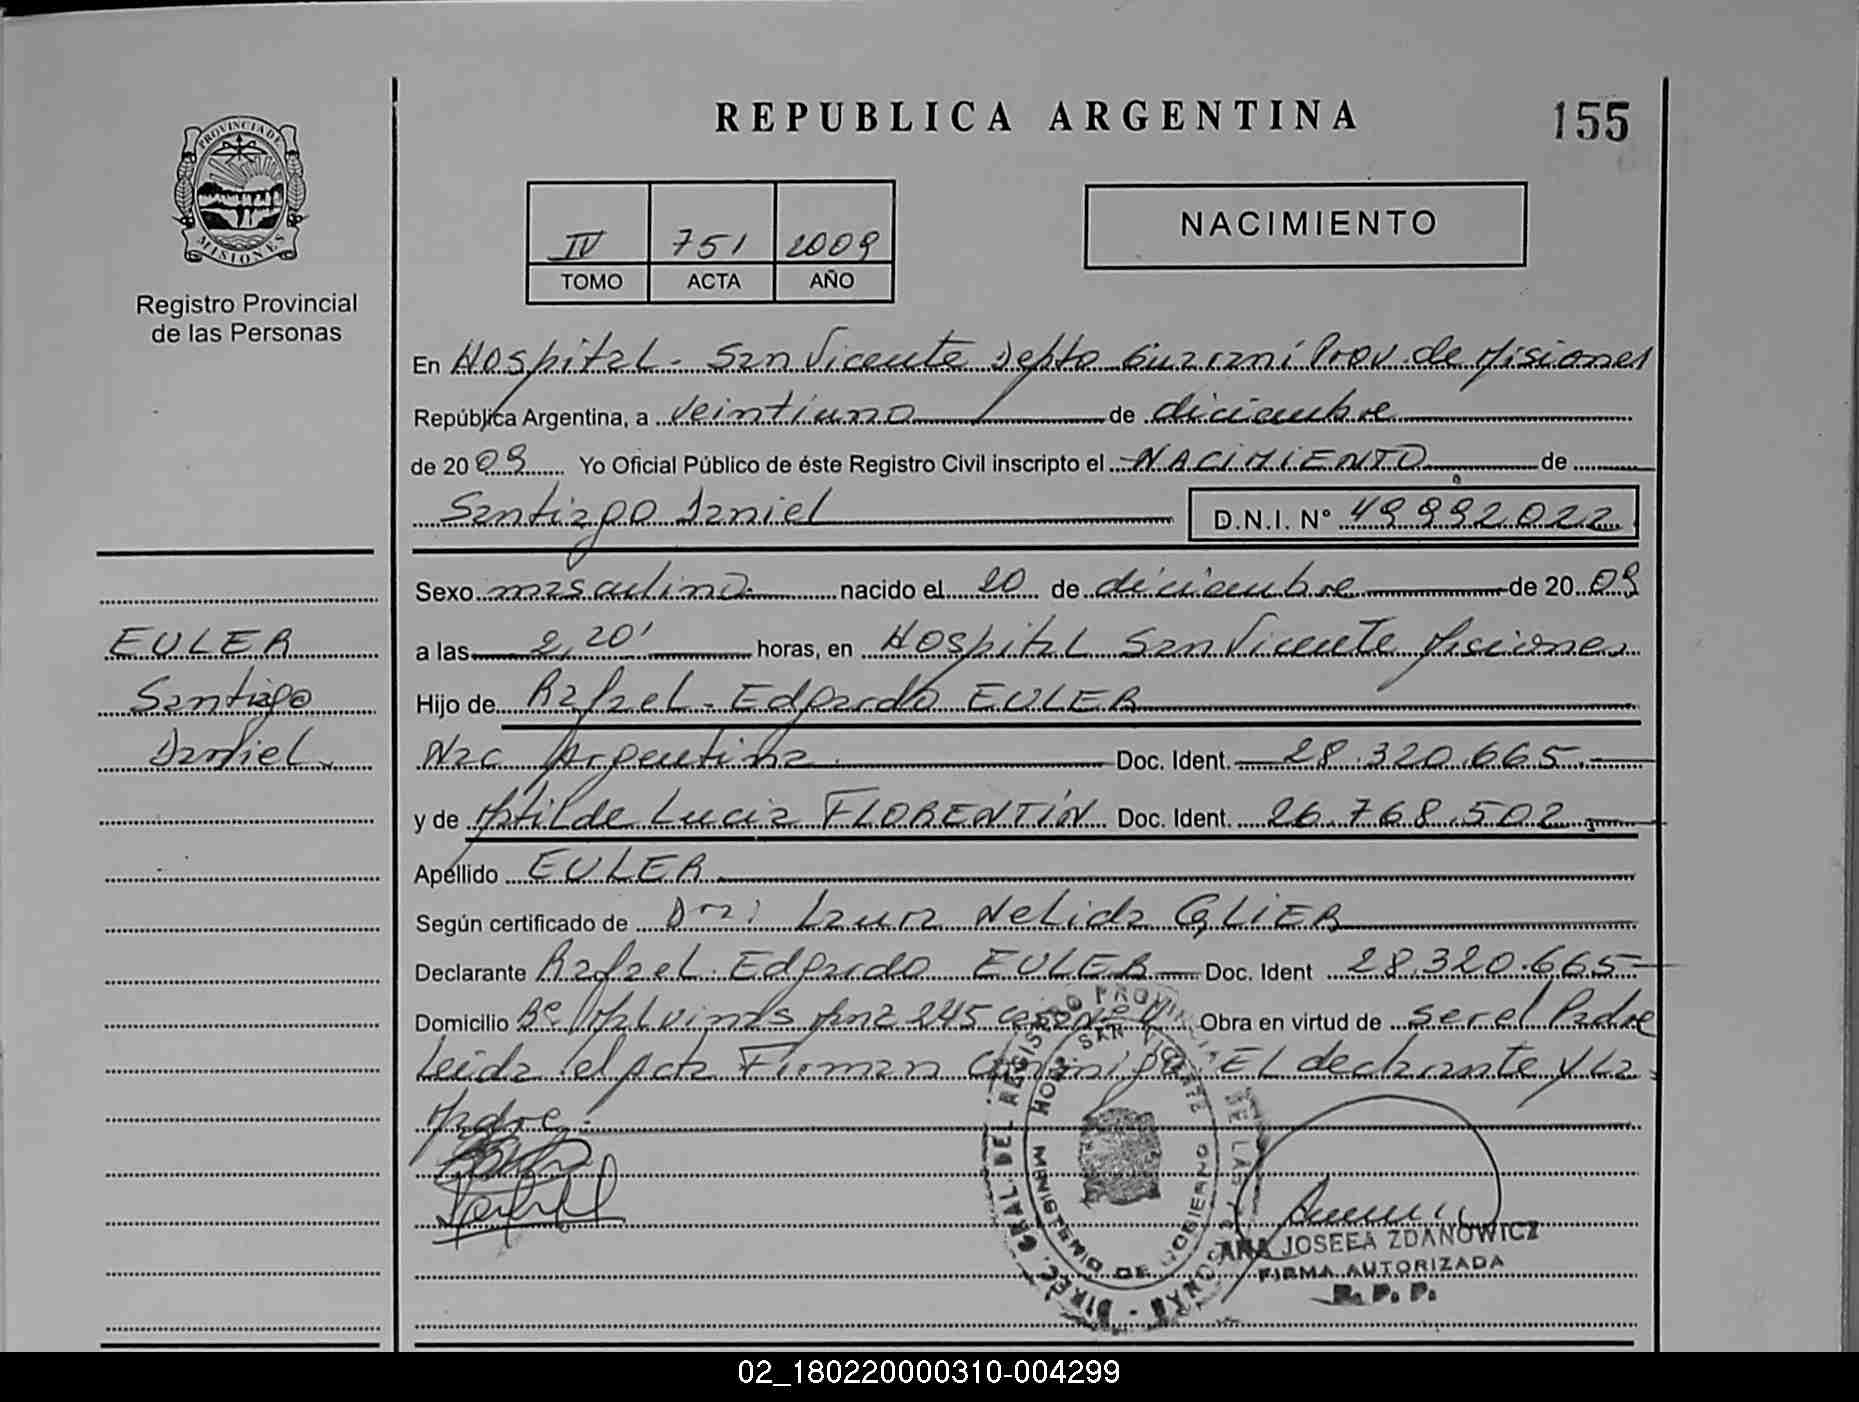 REPUBLICA ARGENTINA
155
PROVINCIA DE
MISIONES
Registro Provincial
de las Personas
IV 751 2009
TOMO ACTA AÑO
NACIMIENTO
En Hospital - San Vicente Depto Guaraní Prov. de Misiones
República Argentina, a veintiuno de diciembre
de 2009 Yo Oficial Público de éste Registro Civil inscripto el NACIMIENTO de
Santiago Daniel D.N.I. N° 49992022
Sexo masculino nacido el 20 de diciembre de 2009
a las 2,20' horas, en Hospital San Vicente Misiones
Hijo de Rafael - Edgardo EULER
Nac Argentina Doc. Ident. 28.320.665
y de Matilde Lucia FLORENTÍN Doc. Ident. 26.768.502
Apellido EULER
Según certificado de Dra: Laura Nelida GLIER
Declarante Rafael. Edgardo EULER Doc. Ident 28.320.665
Domicilio B° Malvinas mna 245 casa N° 4 Obra en virtud de ser el Padre
Leida el acta Firman Conmigo El declarante y La
Madre.
EULER
Santiago
Daniel
DIREC. GRAL DEL REGISTRO PROVINCIAL DE LAS PERSONAS
HOSP. SAN VICENTE
MINISTERIO DE GOBIERNO
ANA JOSEFA ZDANOWICZ
FIRMA AUTORIZADA
R. P. P.
02_180220000310-004299